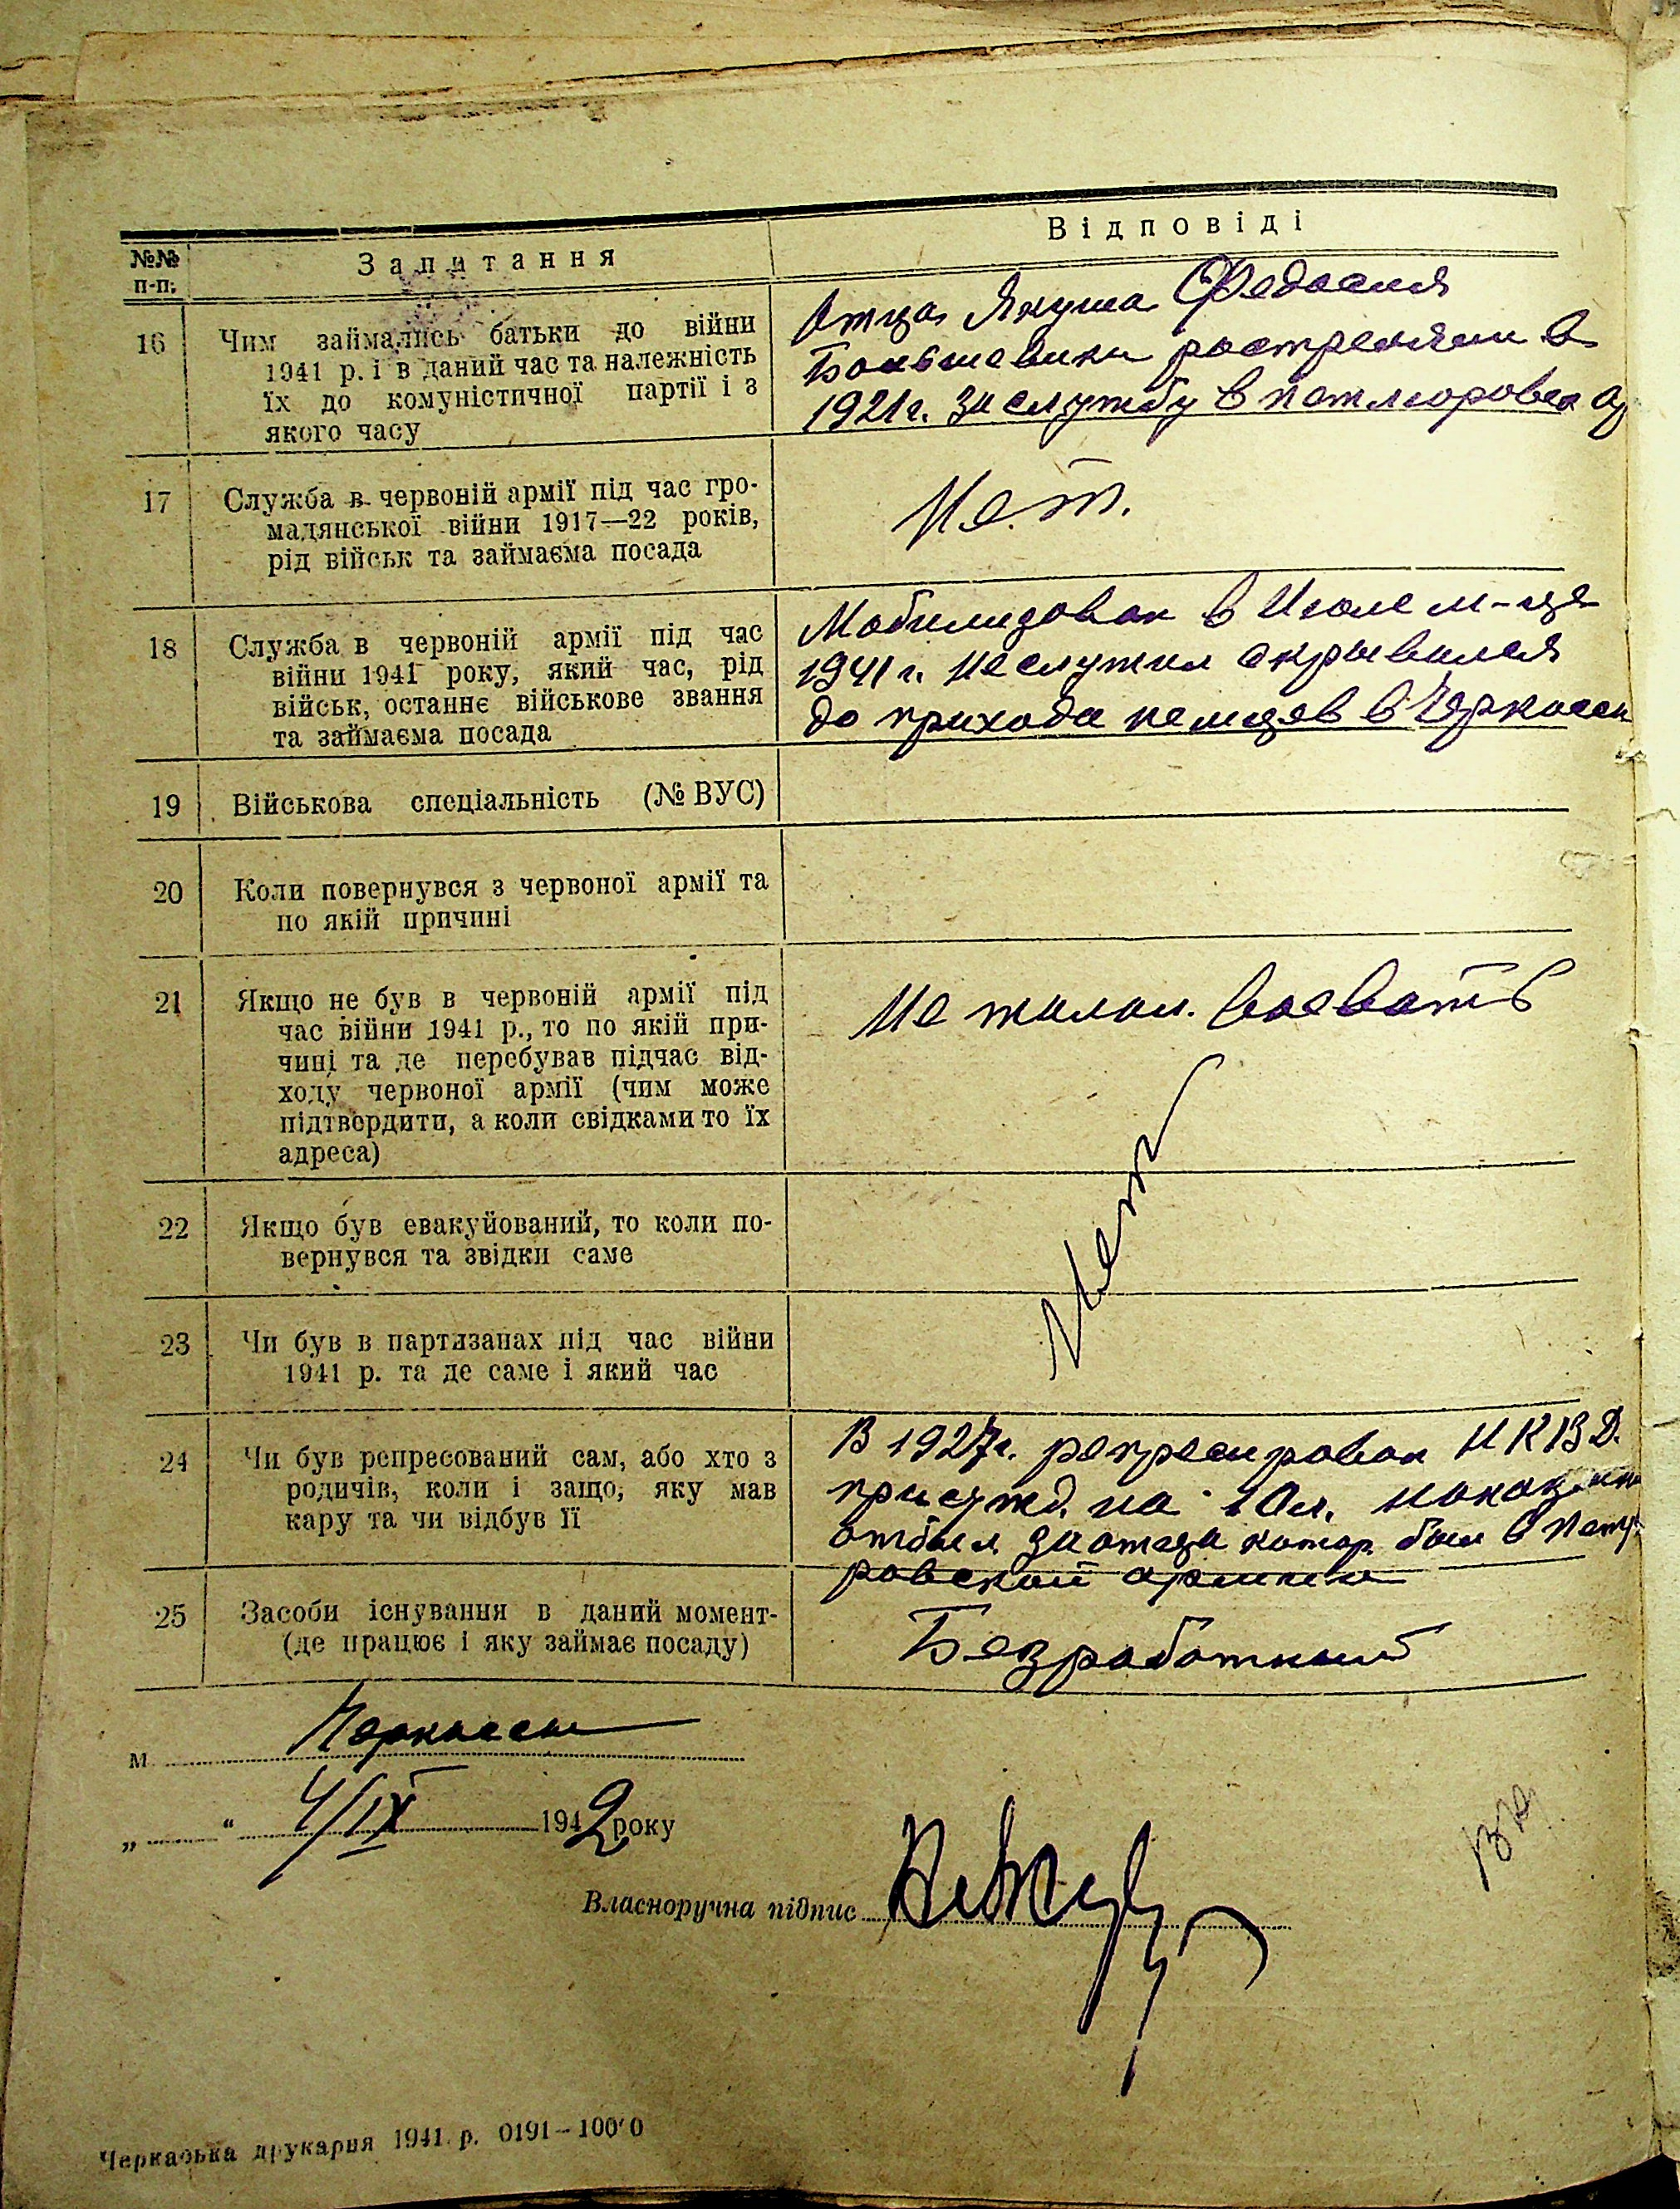 №№ п-п; Запитання Відповіді
16 Чим займались батьки до війни
1941 р. і в даний час та належність
їх до комуністичної партії і з
якого часу
Отца Якуша Федосия
Большевики ростреляли в
1921 г. за службу в петлюровск
17 Служба в червоній армії під час гро-
мадянської війни 1917—22 років,
рід військ та займаєма посада
Нет.
18 Служба в червоній армії під час
війни 1941 року, який час, рід
військ, останнє військове звання
та займаєма посада
Мобилизован в Июле м-це
1941 г. не служил скрывался
до прихода немцев в Черкассы
19 Військова спеціальність (№ ВУС)
20 Коли повернувся з червоної армії та
по якій причині
21 Якщо не був в червоній армії під
час війни 1941 р., то по якій при-
чині та де перебував підчас від-
ходу червоної армії (чим може
підтвордити, а коли свідками то їх
адреса)
Не желал воевать
22 Якщо був евакуйований, то коли по-
вернувся та звідки саме
Нет
23 Чи був в партизанах під час війни
1941 р. та де саме і який час
24 Чи був репресований сам, або хто з
родичів, коли і защо, яку мав
кару та чи відбув її
В 1927 г. репресирован НКВД.
присужд. на 10 л.
отбыл за отца котор. был в
ровской армии
25 Засоби існування в даний момент-
(де працює і яку займає посаду)
Безработный
м. Черкассы
„ “ 4/IX 1942 року
Власноручна підпис
Черкаська друкарня 1941 р. 0191—100'0